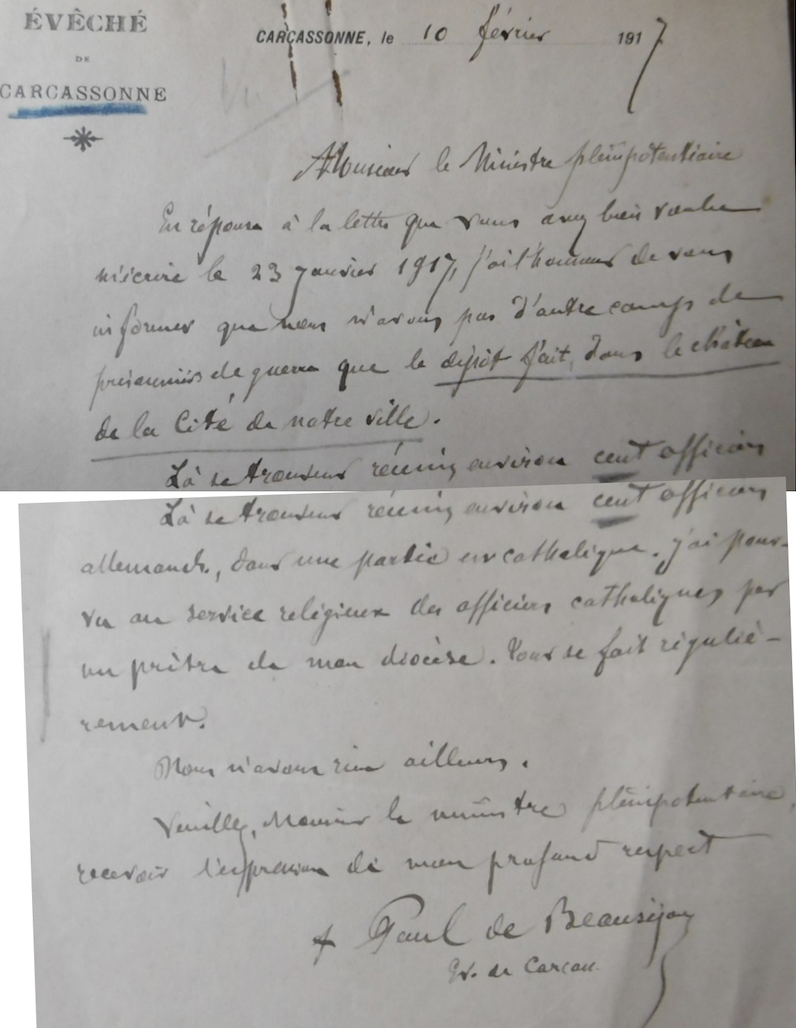 ÉVÊCHÉ
DE
CARCASSONNE
CARCASSONNE, le 10 février 1917
Monsieur le Ministre plénipotentiaire
En réponse à la lettre que vous avez bien voulu
m'écrire le 23 janvier 1917, j'ai l'honneur de vous
informer que nous n'avons pas d'autre camp de
prisonniers de guerre que le dépôt fait dans le château
de la Cité de notre ville.
Là se trouvent réunis environ cent officiers
Là se trouvent réunis environ cent officiers
allemands, dont une partie est catholique. j'ai pour-
vu au service religieux des officiers catholiques par
un prêtre de mon diocèse. Tout se fait réguliè-
rement.
Nous n'avons rien ailleurs.
Veuillez, Monsieur le ministre plénipotentiaire,
recevoir l'expression de mon profond respect
+ Paul de Beauséjour
Ev. de Carcas.